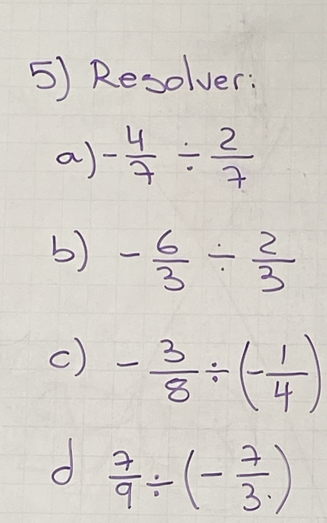 5) Resolver:
a) - 4/7 ÷ 2/7
b) - 6/3 ÷ 2/3
c) - 3/8 ÷ (- 1/4)
d 7/9 ÷ (- 7/3.)